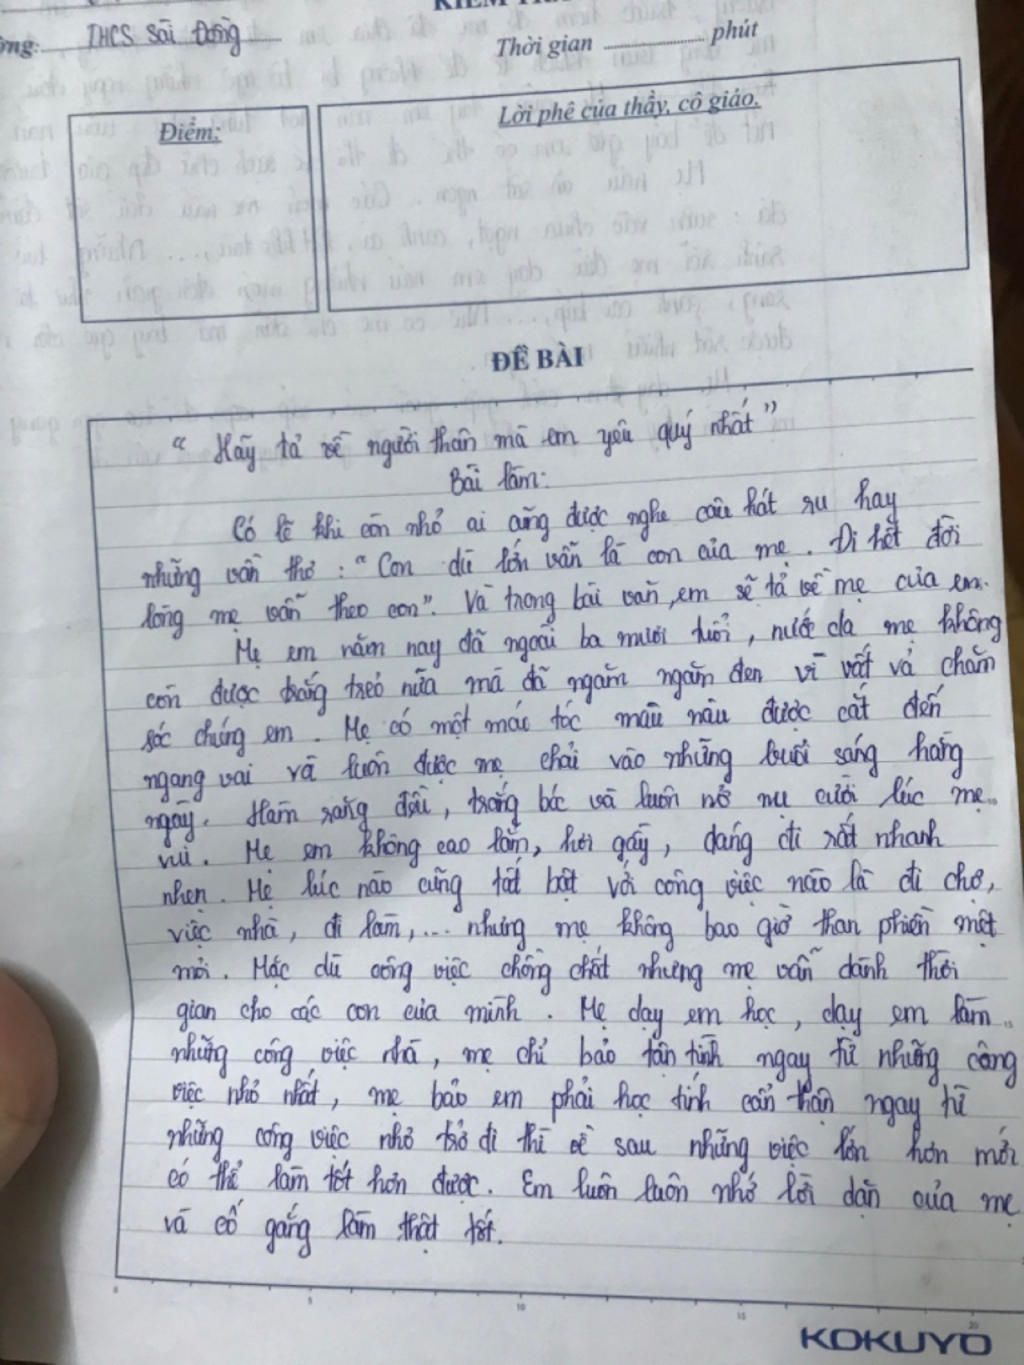 THCS Sài Đồng
Thời gian .................... phút
Điểm:
Lời phê của thầy, cô giáo.
ĐỀ BÀI
“ Hãy tả về người thân mà em yêu quý nhất ”
Bài làm:
Có lẽ khi còn nhỏ ai cũng được nghe câu hát ru hay
những vần thơ : “ Con dù lớn vẫn là con của mẹ . Đi hết đời
lòng mẹ vẫn theo con”. Và trong bài văn, em sẽ tả về mẹ của em.
Mẹ em năm nay đã ngoài ba mươi tuổi , nước da mẹ không
còn được trắng trẻo nữa mà đã ngăm ngăm đen vì vất vả chăm
sóc chúng em . Mẹ có một mái tóc màu nâu được cắt đến
ngang vai và luôn được mẹ chải vào những buổi sáng hàng
ngày. Hàm răng đều , trắng bóc và luôn nở nụ cười lúc mẹ
vui . Mẹ em không cao lắm, hơi gầy , dáng đi rất nhanh
nhẹn . Mẹ lúc nào cũng tất bật với công việc nào là đi chợ,
việc nhà , đi làm ,... nhưng mẹ không bao giờ than phiền mệt
mỏi . Mặc dù công việc chồng chất nhưng mẹ vẫn dành thời
gian cho các con của mình . Mẹ dạy em học , dạy em làm
những công việc nhà , mẹ chỉ bảo tận tình ngay từ những công
việc nhỏ nhất , mẹ bảo em phải học tính cẩn thận ngay từ
những công việc nhỏ trở đi thì về sau những việc lớn hơn mới
có thể làm tốt hơn được . Em luôn luôn nhớ lời dặn của mẹ
và cố gắng làm thật tốt.
0 5 10 15 20
KOKUYO